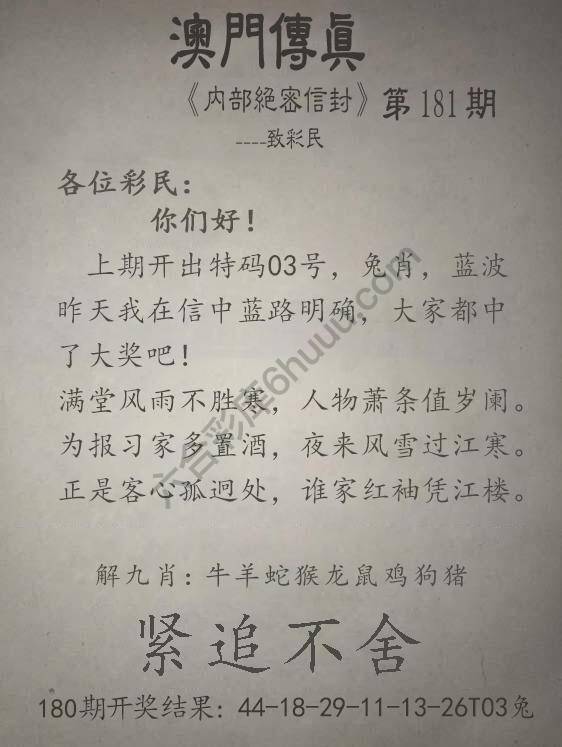 澳門傳眞
《内部絕密信封》第181期
----致彩民
各位彩民：
你们好！
上期开出特码03号，兔肖，蓝波
昨天我在信中蓝路明确，大家都中
了大奖吧！
满堂风雨不胜寒，人物萧条值岁阑。
为报习家多置酒，夜来风雪过江寒。
正是客心孤迥处，谁家红袖凭江楼。
六合彩库6huuu.com
解九肖：牛羊蛇猴龙鼠鸡狗猪
紧追不舍
180期开奖结果：44-18-29-11-13-26T03兔